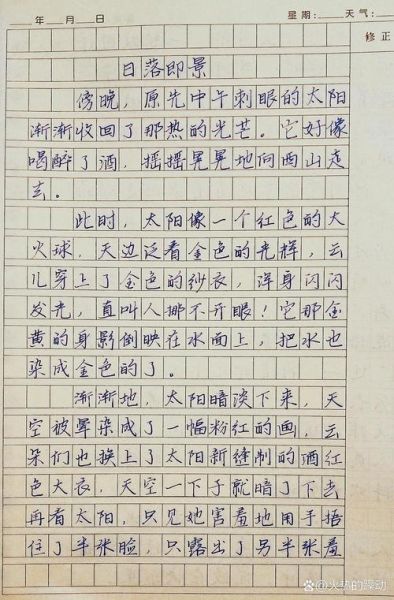 年 月 日 星期: 天气:
修正
日落即景
傍晚，原先中午刺眼的太阳
渐渐收回了那热的光芒。它好像
喝醉了酒，摇摇晃晃地向西山走
去。
此时，太阳像一个红色的大
火球，天边泛着金色的光辉，云
儿穿上了金色的纱衣，浑身闪闪
发光，直叫人挪不开眼！它那金
黄的身影倒映在水面上，把水也
染成金色的了。
渐渐地，太阳暗淡下来，天
空被晕染成了一幅粉红的画，云
朵们也换上了太阳新缝制的酒红
色大衣，天空一下子就暗了下去
再看太阳，只见她害羞地用手捂
住了半张脸，只露出了另半张羞
@火热的躁动